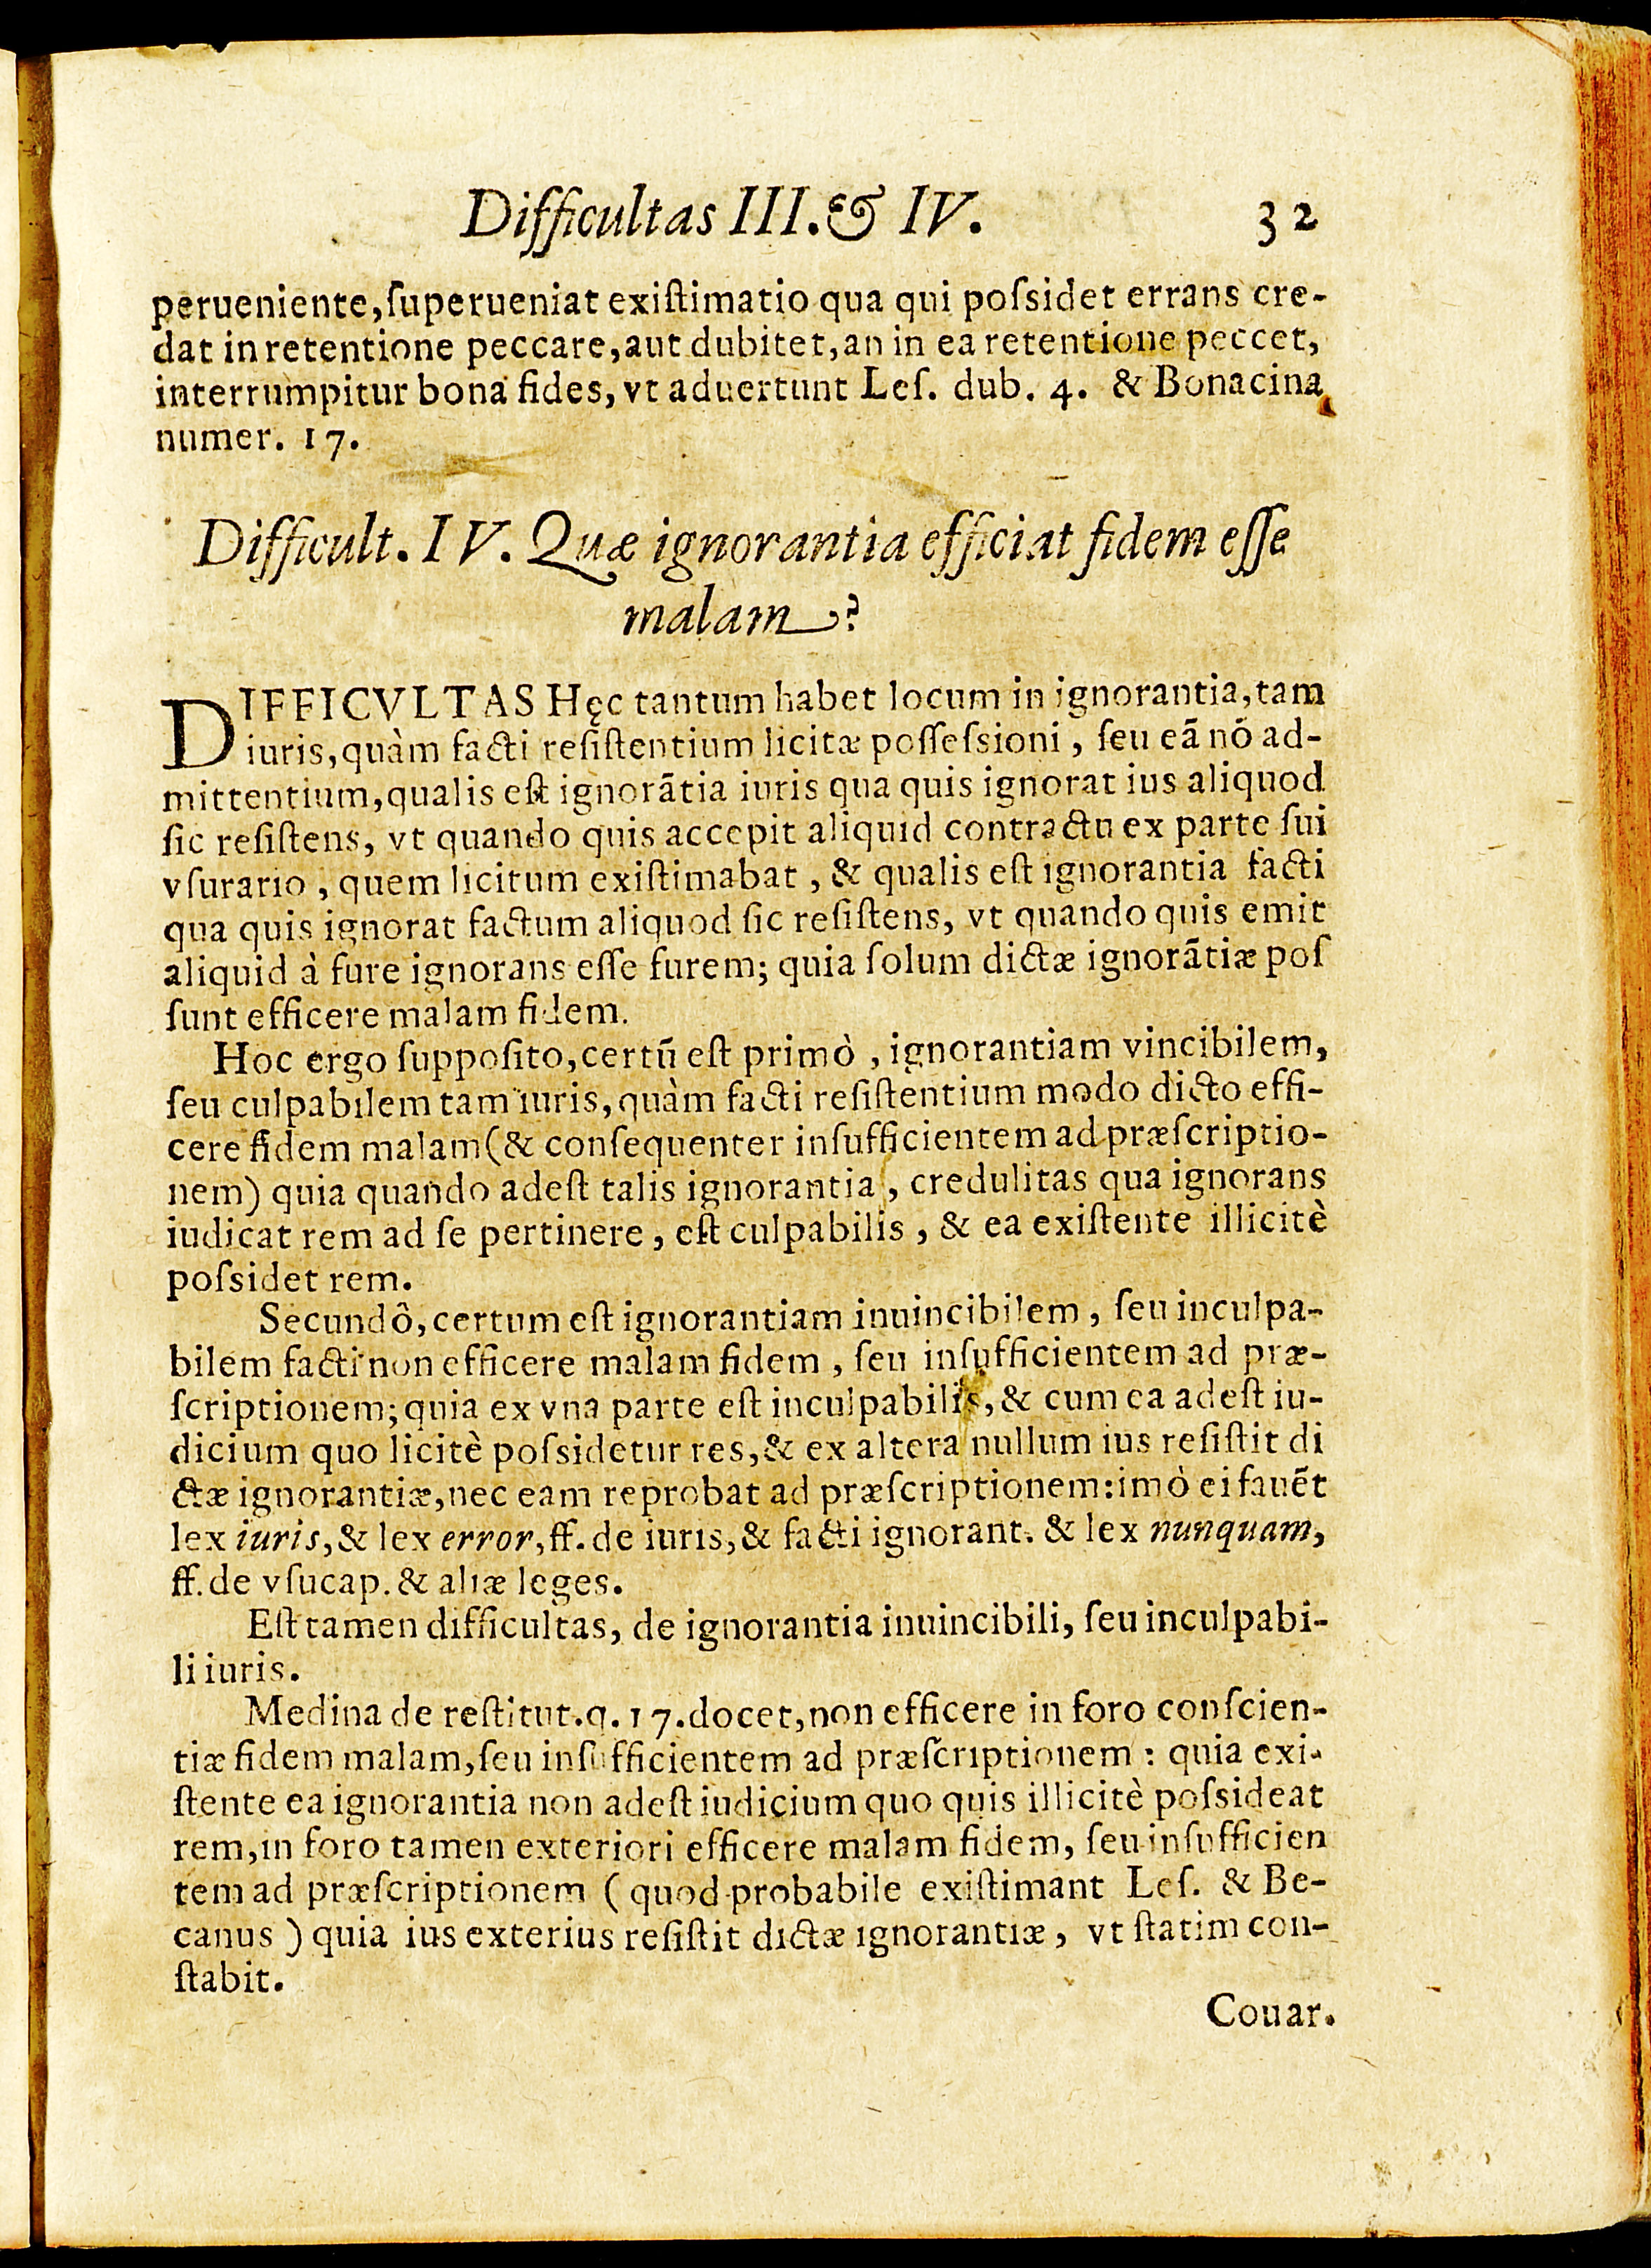 Difficultas III. & IV. 32
perueniente, ſuperueniat exiſtimatio qua qui poſsidet errans cre-
dat in retentione peccare, aut dubitet, an in ea retentione peccet,
interrumpitur bona fides, vt aduertunt Leſ. dub. 4. & Bonacina
numer. 17.
Difficult. IV. Quæ ignorantia efficiat fidem eſſe
malam?
DIFFICVLTAS Hęc tantum habet locum in ignorantia, tam
iuris, quàm facti reſiſtentium licitæ poſſeſsioni, ſeu eā nō ad-
mittentium, qualis eſt ignorātia iuris qua quis ignorat ius aliquod
ſic reſiſtens, vt quando quis accepit aliquid contractu ex parte ſui
vſurario, quem licitum exiſtimabat, & qualis eſt ignorantia facti
qua quis ignorat factum aliquod ſic reſiſtens, vt quando quis emit
aliquid à fure ignorans eſſe furem; quia ſolum dictæ ignorātiæ poſ
ſunt efficere malam fidem.
Hoc ergo ſuppoſito, certū eſt primò, ignorantiam vincibilem,
ſeu culpabilem tam iuris, quàm facti reſiſtentium modo dicto effi-
cere fidem malam (& conſequenter inſufficientem ad præſcriptio-
nem) quia quando adeſt talis ignorantia, credulitas qua ignorans
iudicat rem ad ſe pertinere, eſt culpabilis, & ea exiſtente illicitè
poſsidet rem.
Secundô, certum eſt ignorantiam inuincibilem, ſeu inculpa-
bilem facti non efficere malam fidem, ſeu inſufficientem ad præ-
ſcriptionem; quia ex vna parte eſt inculpabilis, & cum ea adeſt iu-
dicium quo licitè poſsidetur res, & ex altera nullum ius reſiſtit di
ctæ ignorantiæ, nec eam reprobat ad præſcriptionem: imò ei fauēt
lex iuris, & lex error, ff. de iuris, & facti ignorant. & lex nunquam,
ff. de vſucap. & aliæ leges.
Eſt tamen difficultas, de ignorantia inuincibili, ſeu inculpabi-
li iuris.
Medina de reſtitut. q. 17. docet, non efficere in foro conſcien-
tiæ fidem malam, ſeu inſufficientem ad præſcriptionem: quia exi-
ſtente ea ignorantia non adeſt iudicium quo quis illicitè poſsideat
rem, in foro tamen exteriori efficere malam fidem, ſeu inſufficien
tem ad præſcriptionem (quod probabile exiſtimant Leſ. & Be-
canus) quia ius exterius reſiſtit dictæ ignorantiæ, vt ſtatim con-
ſtabit.
Couar.